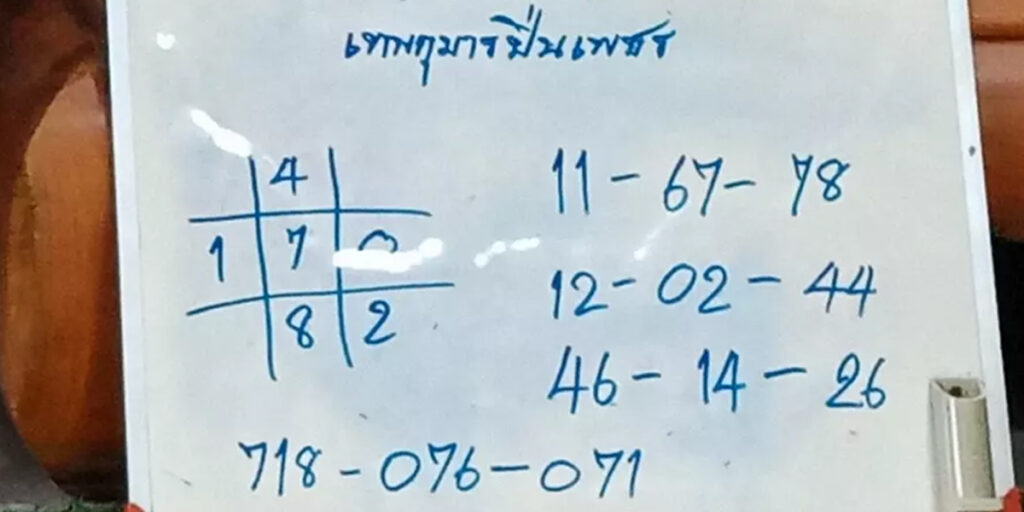 เทพกุมารปืนเพชร
4
1 7
8 2
11 - 67 - 78
12 - 02 - 44
46 - 14 - 26
718 - 076 - 071